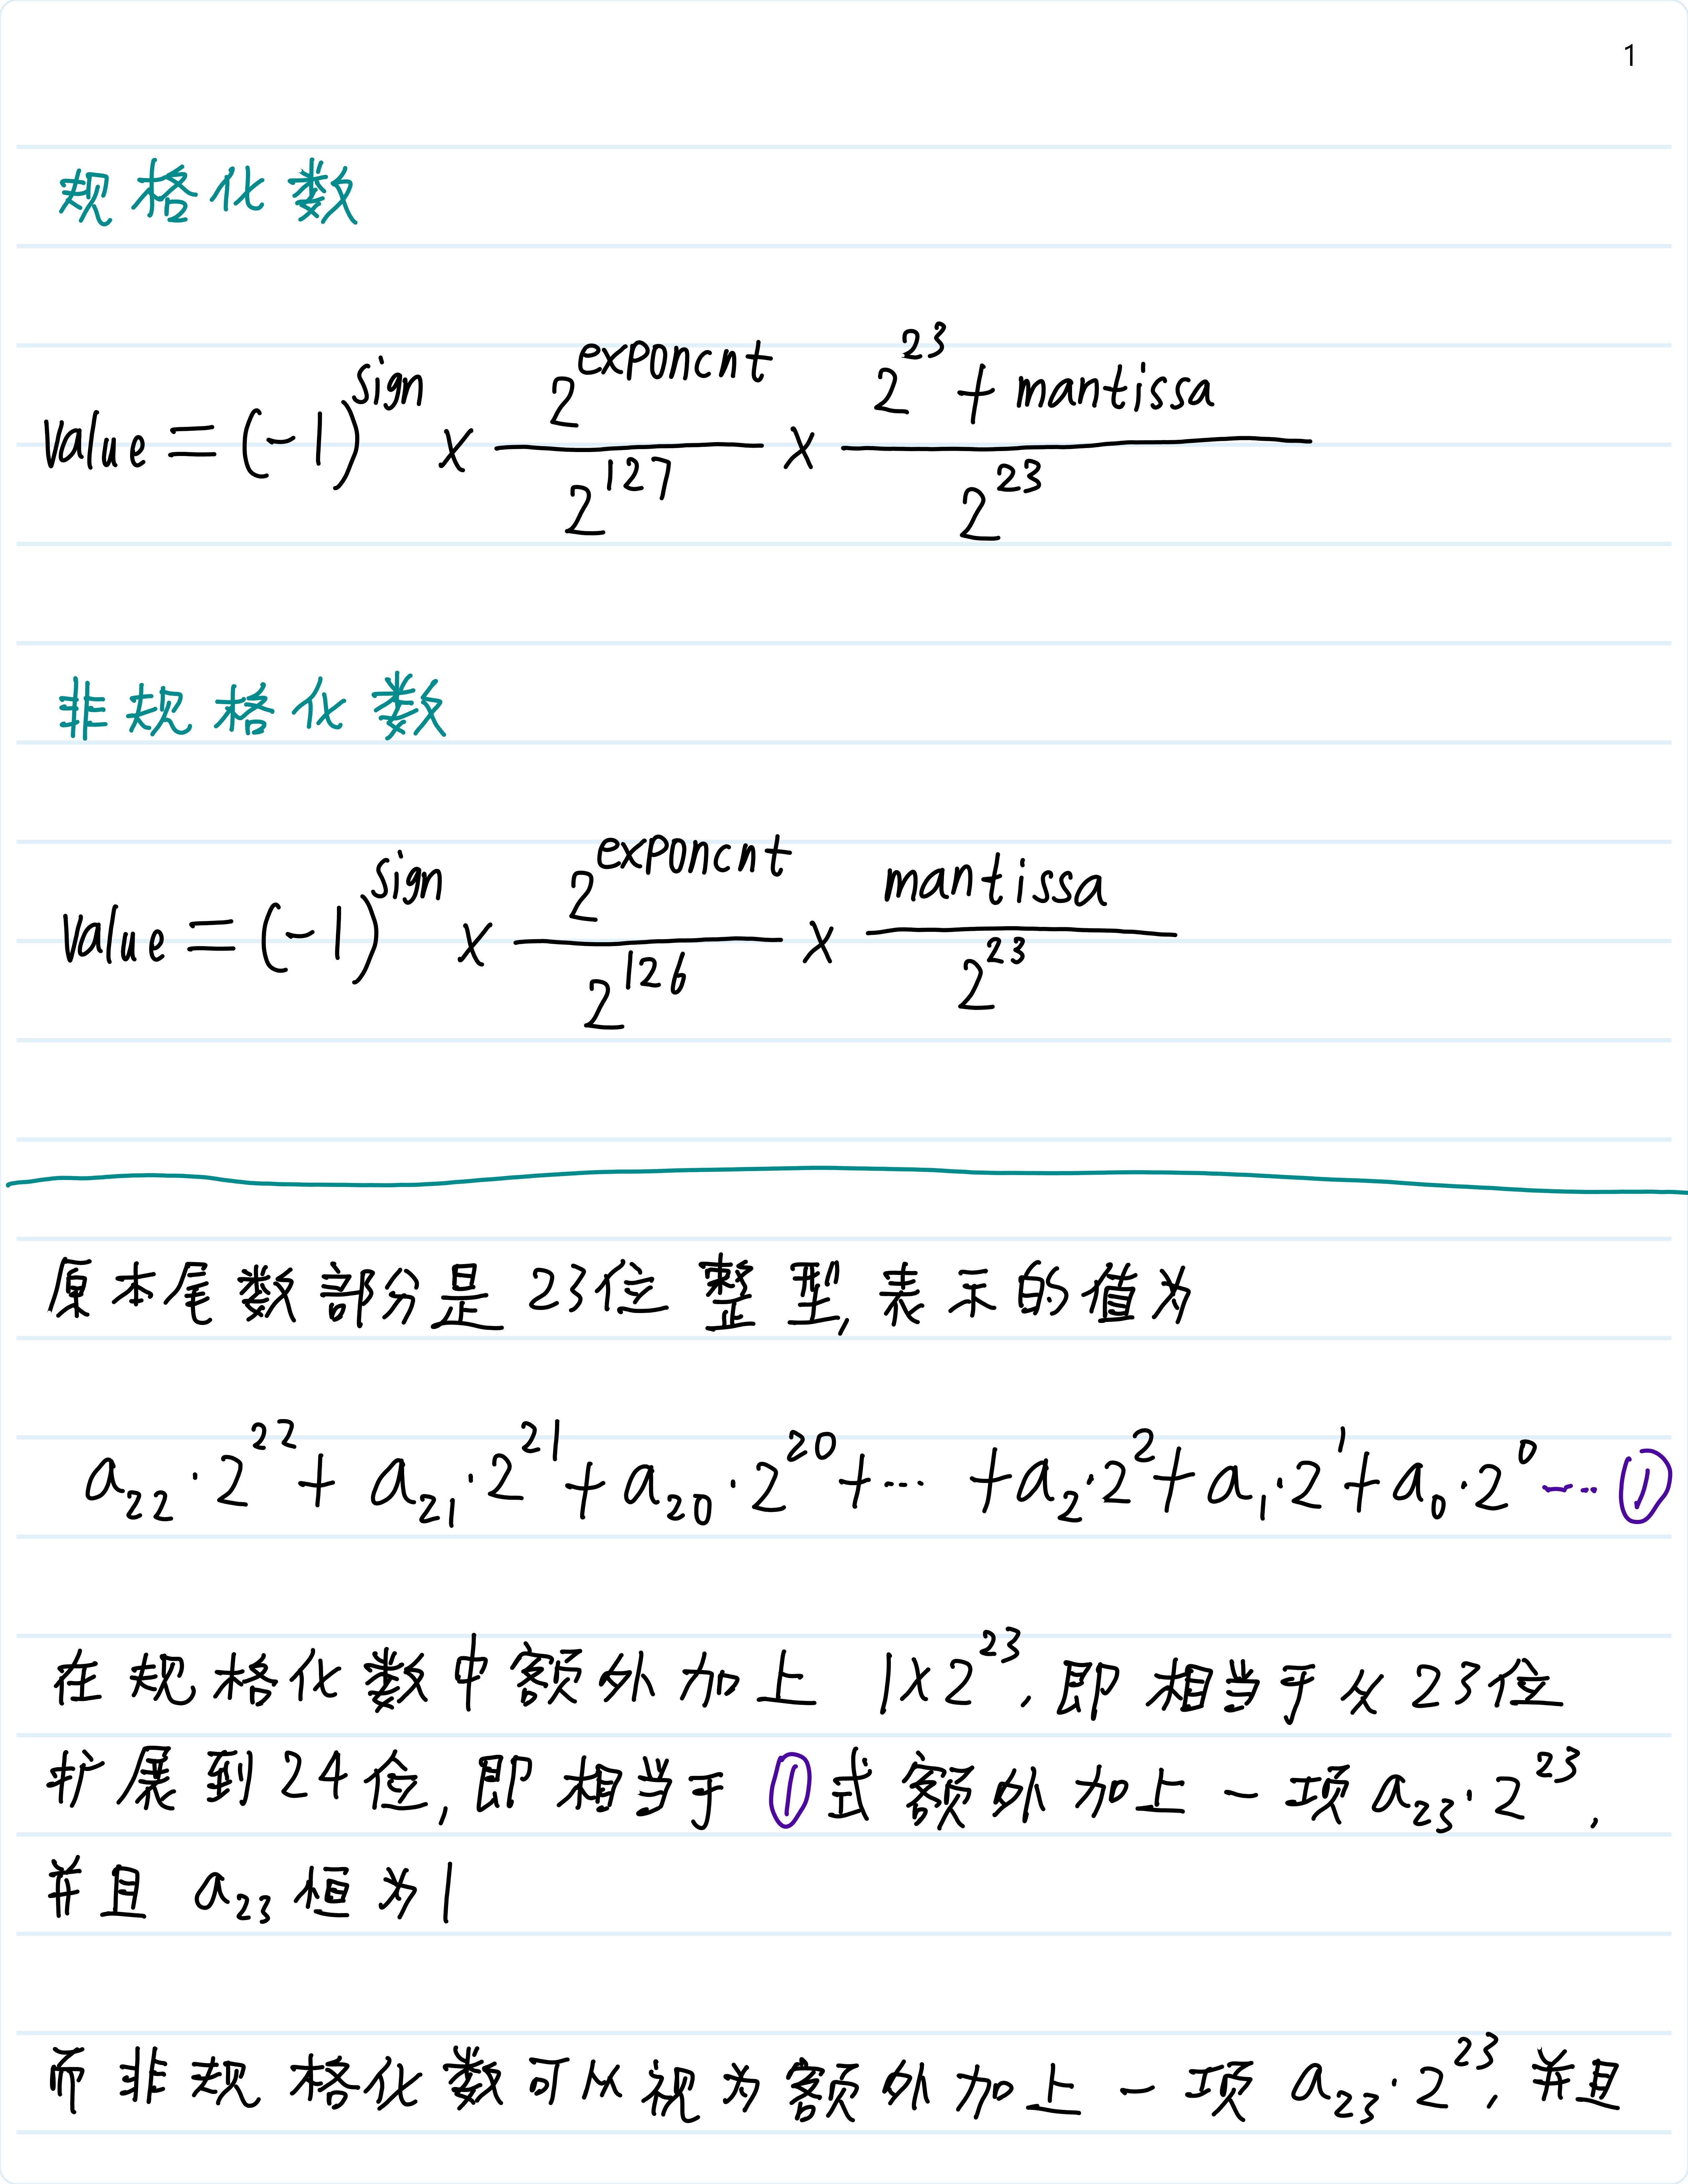 1
规格化数
Value = (-1)^sign × 2^exponent / 2^127 × (2^23 + mantissa) / 2^23
非规格化数
Value = (-1)^sign × 2^exponent / 2^126 × mantissa / 2^23
原本尾数部分是 23位 整型, 表示的值为
a₂₂·2^22 + a₂₁·2^21 + a₂₀·2^20 + ··· + a₂·2^2 + a₁·2^1 + a₀·2^0 ···· ①
在规格化数中额外加上 1×2^23, 即相当于从23位
扩展到24位, 即相当于 ①式额外加上一项a₂₃·2^23,
并且 a₂₃恒为1
而非规格化数可以视为额外加上一项 a₂₃·2^23, 并且